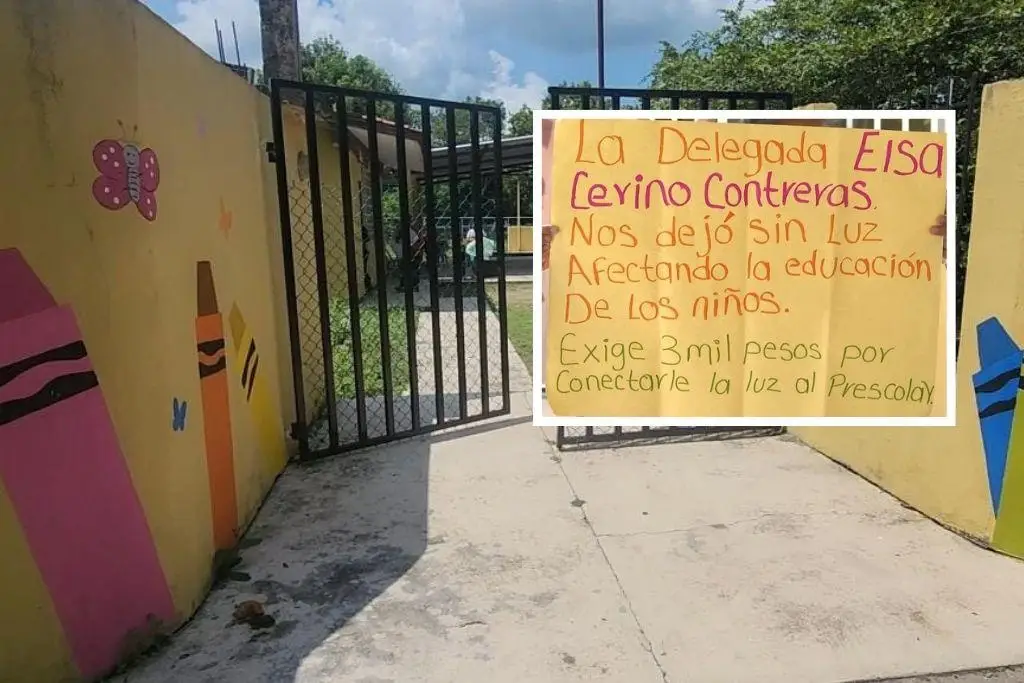 La Delegada Elsa
Cerino Contreras.
Nos dejó sin Luz
Afectando la educación
De los niños.
Exige 3 mil pesos por
Conectarle la luz al Prescolar.